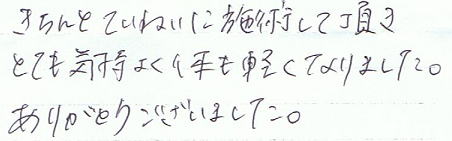 きちんとていねいに施術して頂き
とても気持よく体も軽くなりました。
ありがとうございました。